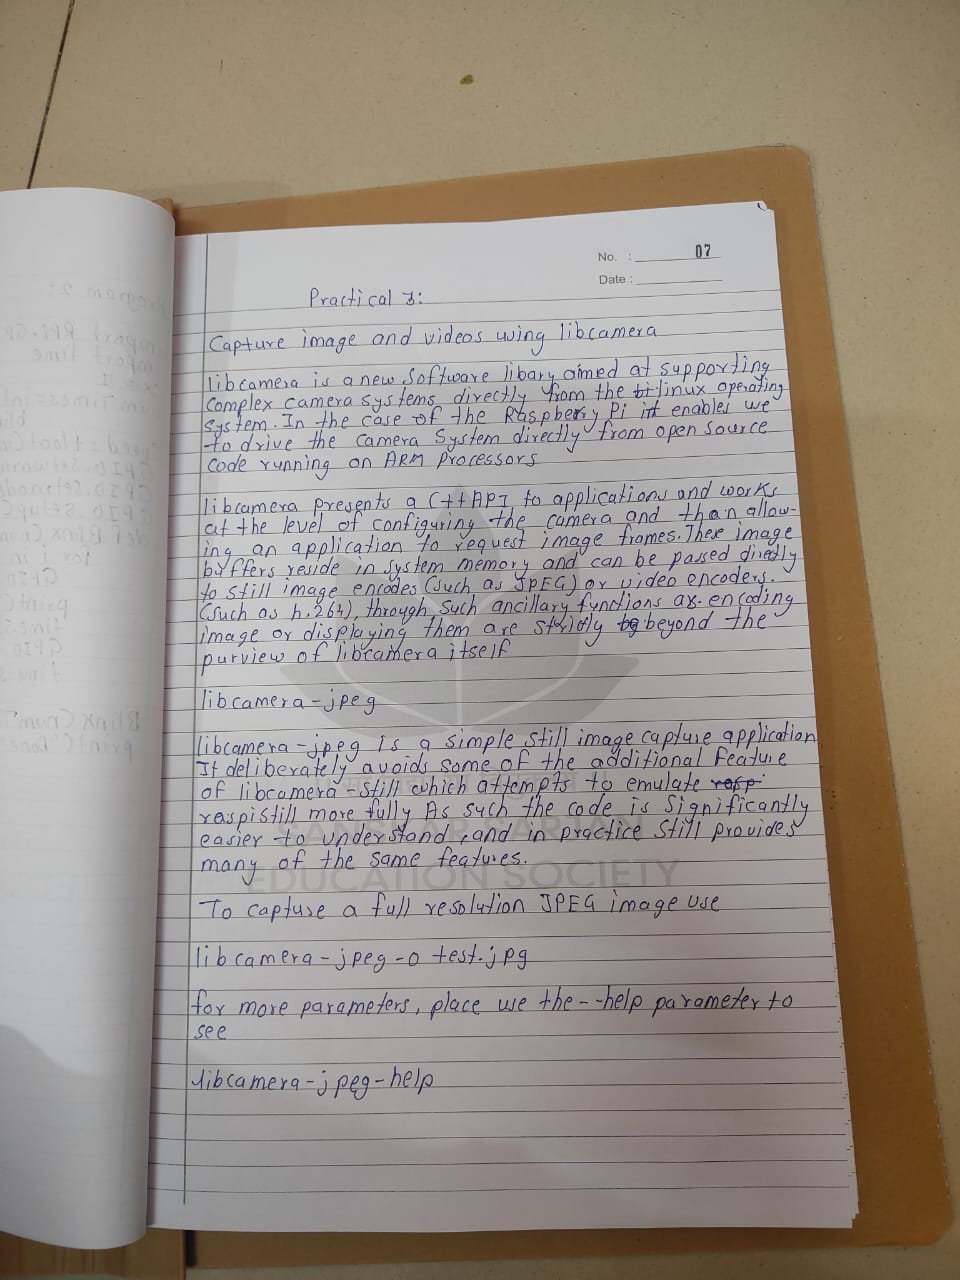 No. : 07
Date :
Practical 3:
Capture image and videos using libcamera
libcamera is a new Software libary aimed at supporting
Complex camera systems directly from the linux operating
System. In the case of the Raspberry Pi it enables we
to drive the camera System directly from open Source
Code running on ARM Processors
libcamera presents a C++ API to applications and works
at the level of configuring the camera and than allow-
ing an application to request image frames. These image
buffers reside in system memory and can be passed directly
to still image encodes (such as JPEG) or video encoders.
(such as h.264), through such ancillary functions as encoding
image or displaying them are strictly beyond the
purview of libcamera itself
libcamera-jpeg
libcamera-jpeg is a simple still image capture application
It deliberately avoids some of the additional feature
of libcamera-still which attempts to emulate
raspistill more fully As such the code is Significantly
easier to understand, and in practice still provides
many of the same features.
To capture a full resolution JPEG image use
libcamera-jpeg -o test.jpg
for more parameters, place use the --help parameter to
see
libcamera-jpeg-help
SANSKAR SARJAN
EDUCATION SOCIETY